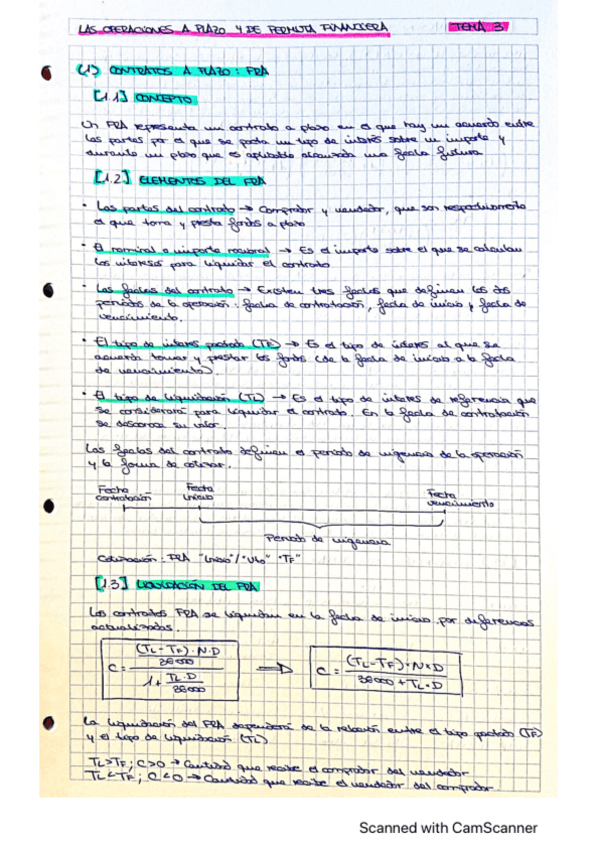 LAS OPERACIONES A PLAZO Y DE PERMUTA FINANCIERA TEMA 3
(1) CONTRATOS A PLAZO: FRA
[1.1] CONCEPTO
Un FRA representa un contrato a plazo en el que hay un acuerdo entre
las partes por el que se pacta un tipo de interés sobre un importe y
durante un plazo que es aplicable alcanzada una fecha futura.
[1.2] ELEMENTOS DEL FRA
• Las partes del contrato → Comprador y vendedor, que son respectivamente
el que toma y presta fondos a plazo
• El nominal o importe nocional → Es el importe sobre el que se calculan
los intereses para liquidar el contrato
• Las fechas del contrato → Existen tres fechas que definen los dos
periodos de la operación: fecha de contratación, fecha de inicio y fecha de
vencimiento.
• El tipo de interés pactado (TF) → Es el tipo de interés al que se
acuerda tomar y prestar los fondos (de la fecha de inicio a la fecha
de vencimiento).
• El tipo de liquidación (TL) → Es el tipo de interés de referencia que
se considerará para liquidar el contrato. En la fecha de contratación
se desconoce su valor.
Las fechas del contrato definen el periodo de vigencia de la operación
y la forma de cotizar.
Fecha contratación Fecha inicio Fecha vencimiento
Periodo de vigencia
Cotización: FRA "Inicio"/"Vto" "TF"
[1.3] LIQUIDACIÓN DEL FRA
Los contratos FRA se liquidan en la fecha de inicio por diferencias
actualizadas.
C = ((TL - TF) · N · D / 36000) / (1 + TL · D / 36000) ⇒ C = (TL - TF) · N × D / (36000 + TL · D)
La liquidación del FRA dependerá de la relación entre el tipo pactado (TF)
y el tipo de liquidación (TL)
TL > TF; C > 0 → Cantidad que recibe el comprador del vendedor
TL < TF; C < 0 → Cantidad que recibe el vendedor del comprador
Scanned with CamScanner